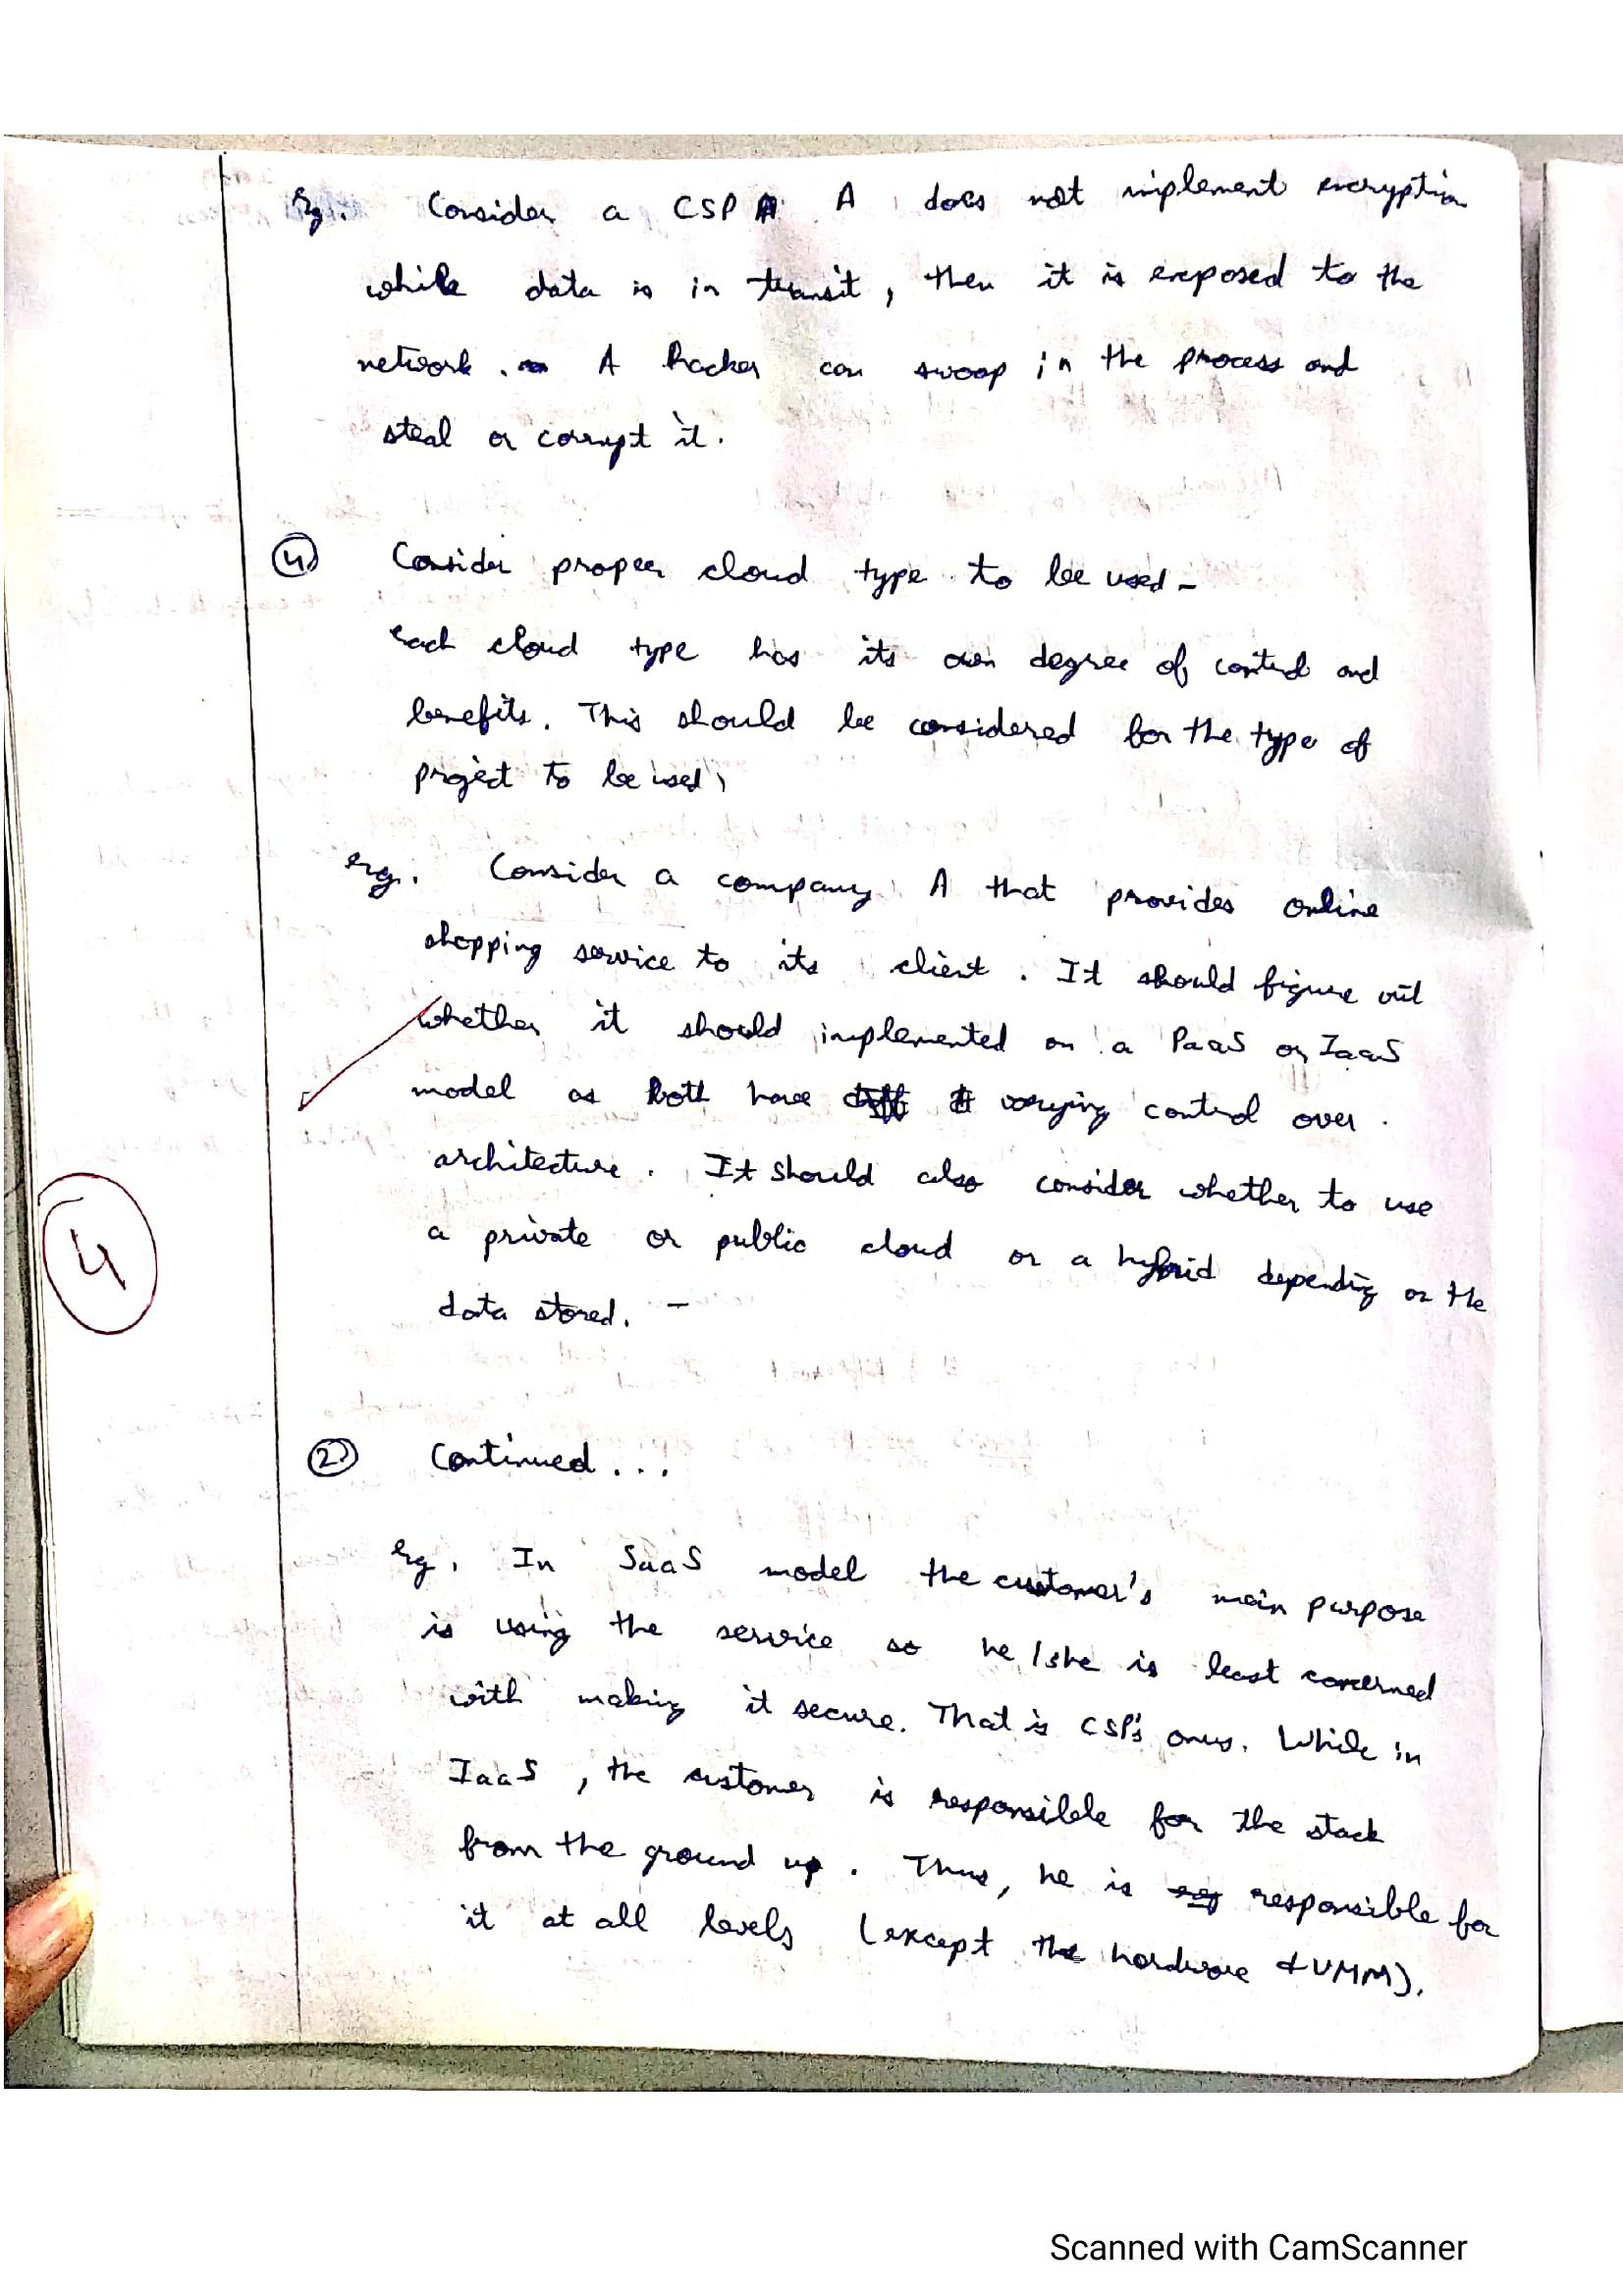 Eg. Consider a CSP A does not implement encryption
while data is in transit, then it is exposed to the
network. A hacker can swoop in the process and
steal or corrupt it.
④ Consider proper cloud type to be used -
each cloud type has its own degree of control and
benefits. This should be considered for the type of
project to be used,
eg. Consider a company A that provides online
shopping service to its client. It should figure out
whether it should implemented on a PaaS or IaaS
model as both have varying control over
architecture. It should also consider whether to use
a private or public cloud or a hybrid depending on the
data stored. -
4
② Continued...
eg. In SaaS model the customer's main purpose
is using the service so he/she is least concerned
with making it secure. That is CSP's onus. While in
IaaS, the customer is responsible for the stack
from the ground up. Thus, he is responsible for
it at all levels (except the hardware & VMM).
Scanned with CamScanner